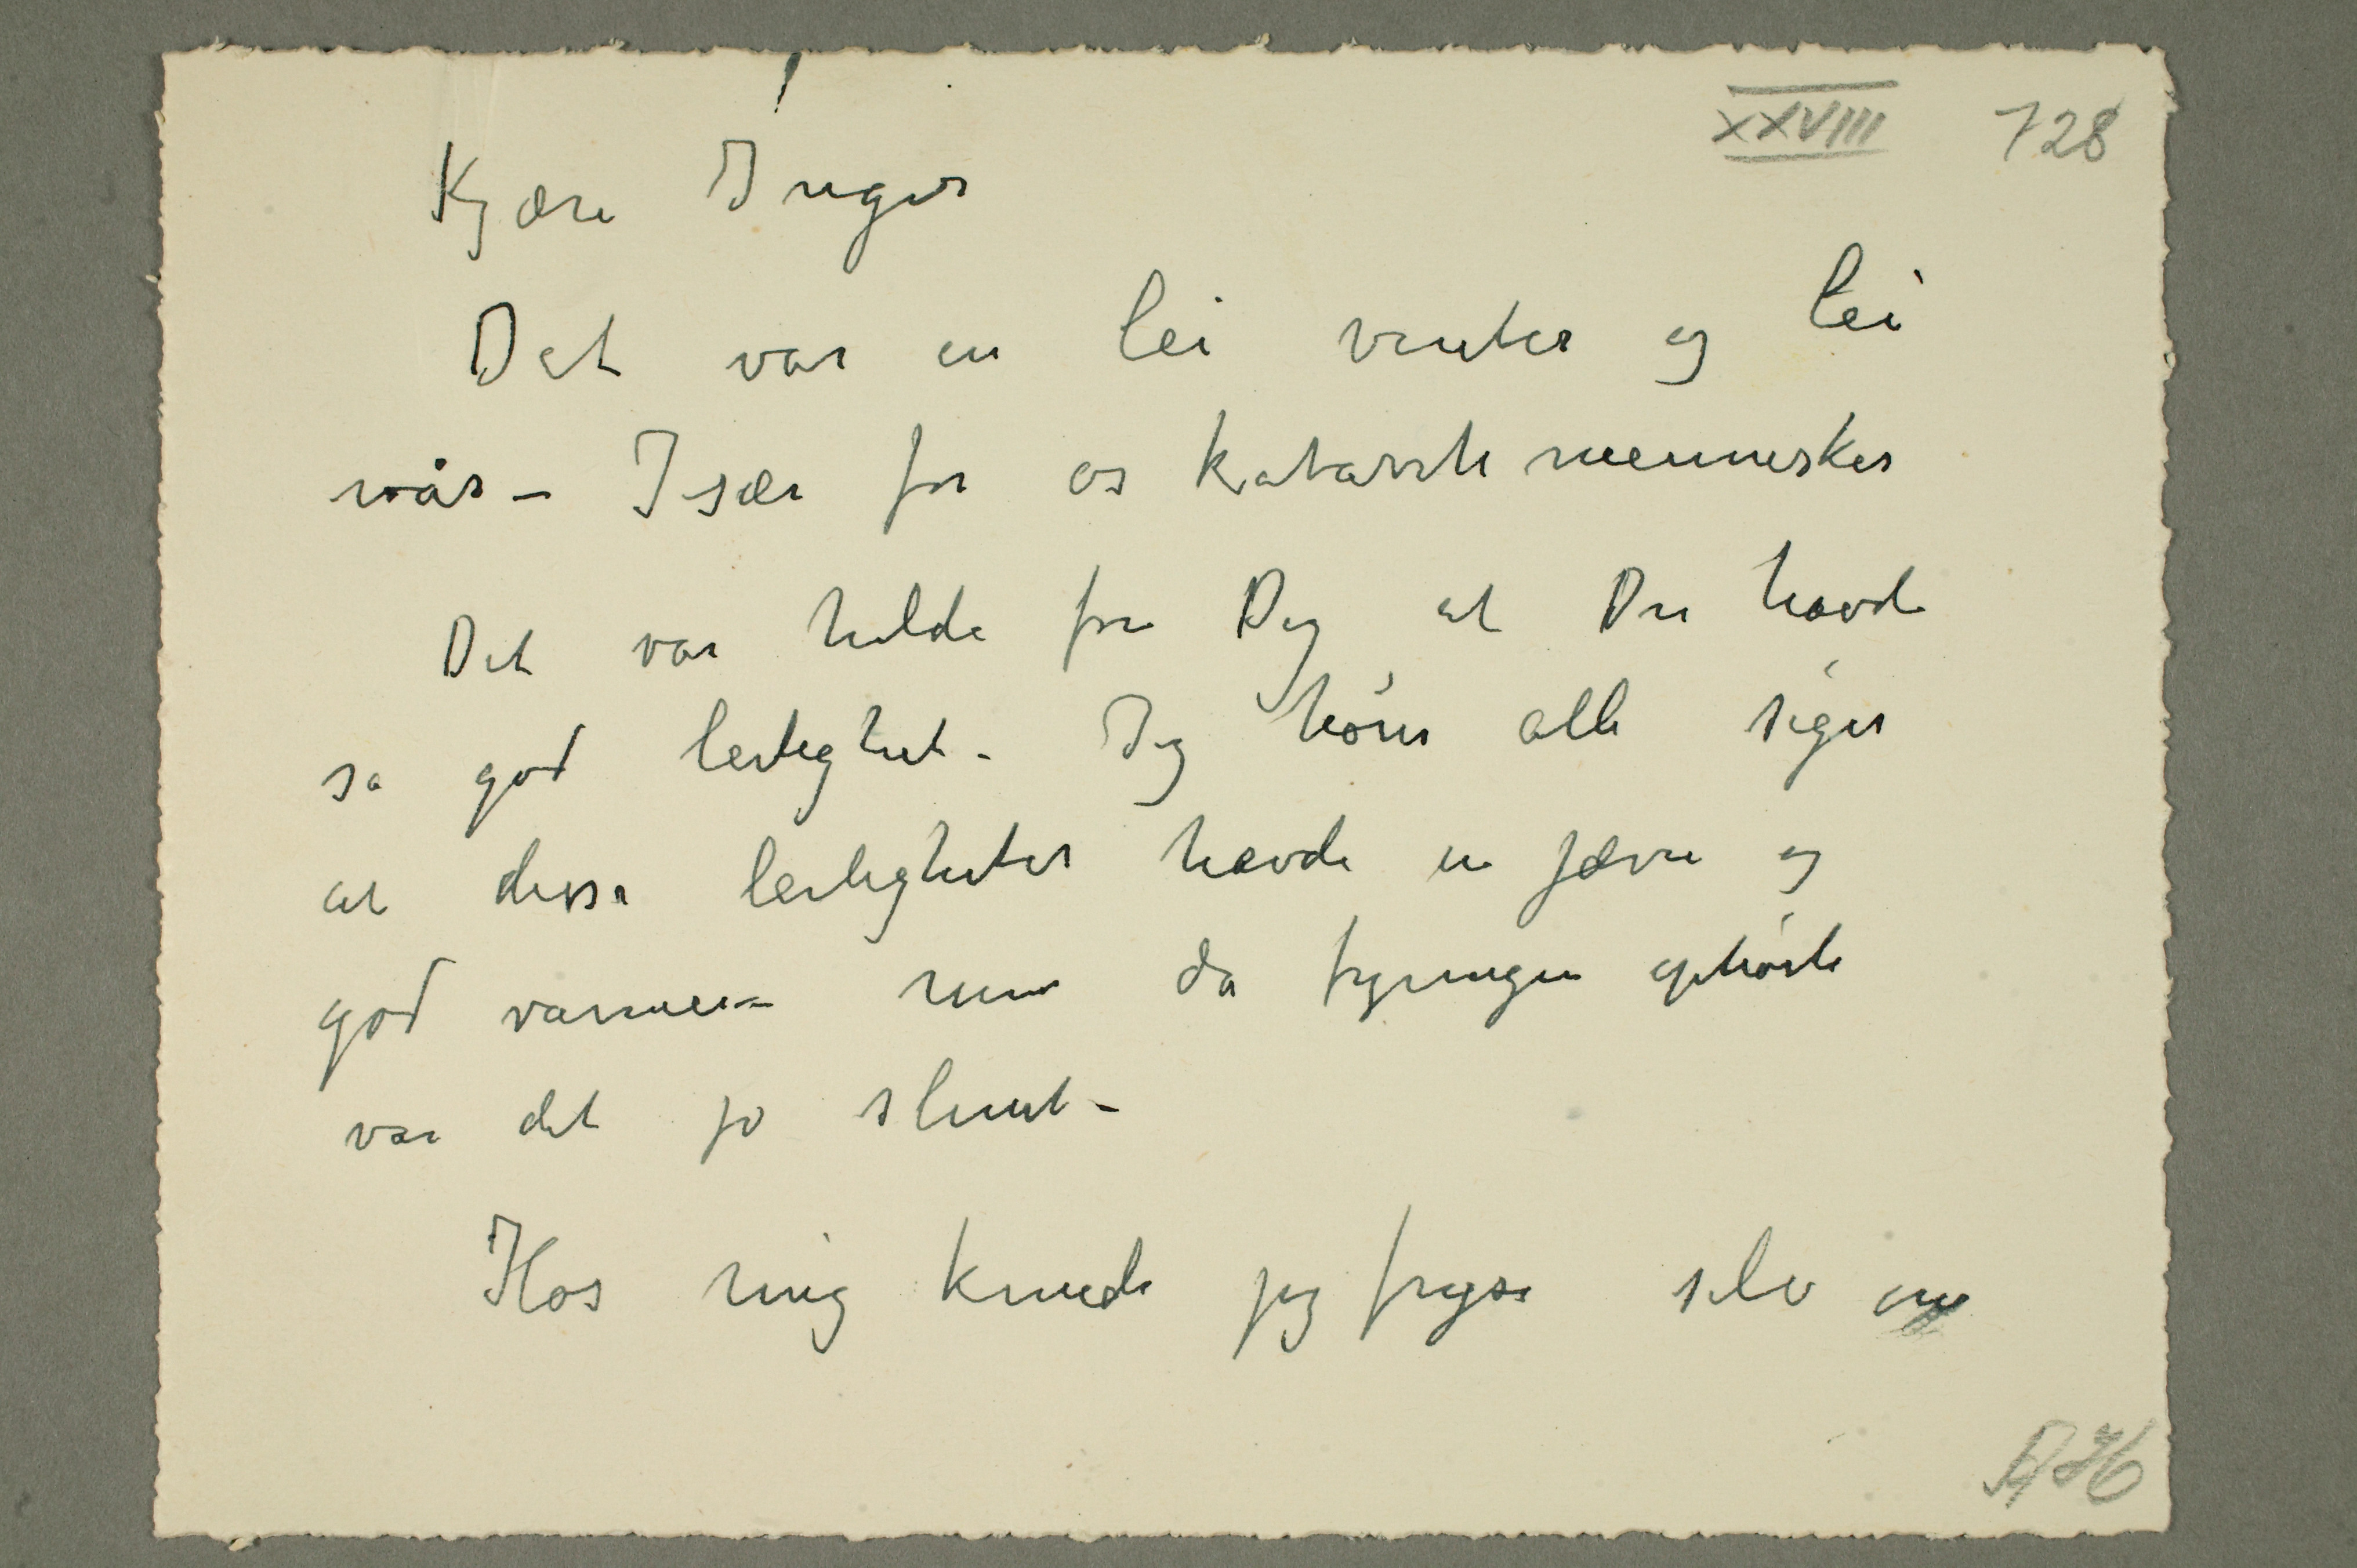 XXVIII 728
Kjære Inger
Det var en lei vinter og lei
vår – Især for os katarrh mennesker
Det var heldi for Dig at Du havde
sa god leilighet – Jeg hører alle siger
at disse leiligheter havde en jævn og
god varme – men da fyringen ophørte
var det jo slemt –
Hos mig kunde jeg fryse selv om